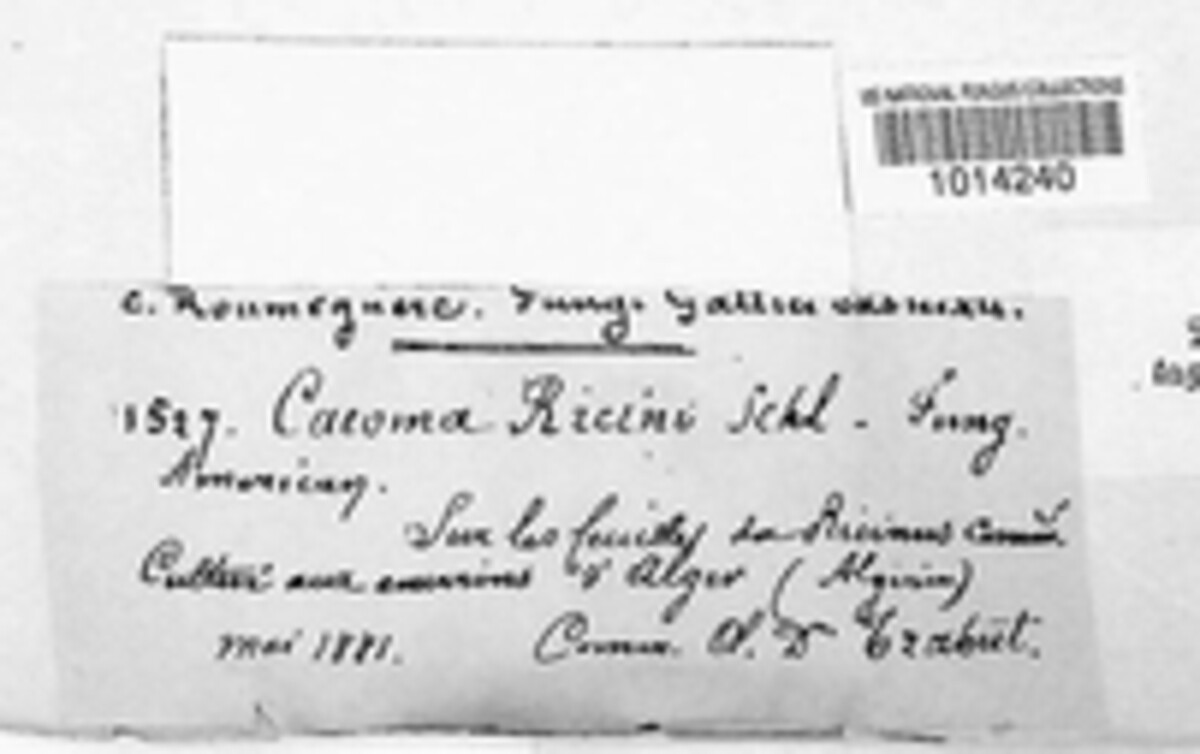 US NATIONAL FUNGUS COLLECTIONS
1014240
C. Roumeguere. Fungi Gallici exsiccati.
1527. Caeoma Ricini Schl - Fung.
American.
Sur les feuilles du Ricinus
Cultivé aux environs d'Alger (Algérie)
mai 1881. Comm. D. Dr Trabut.